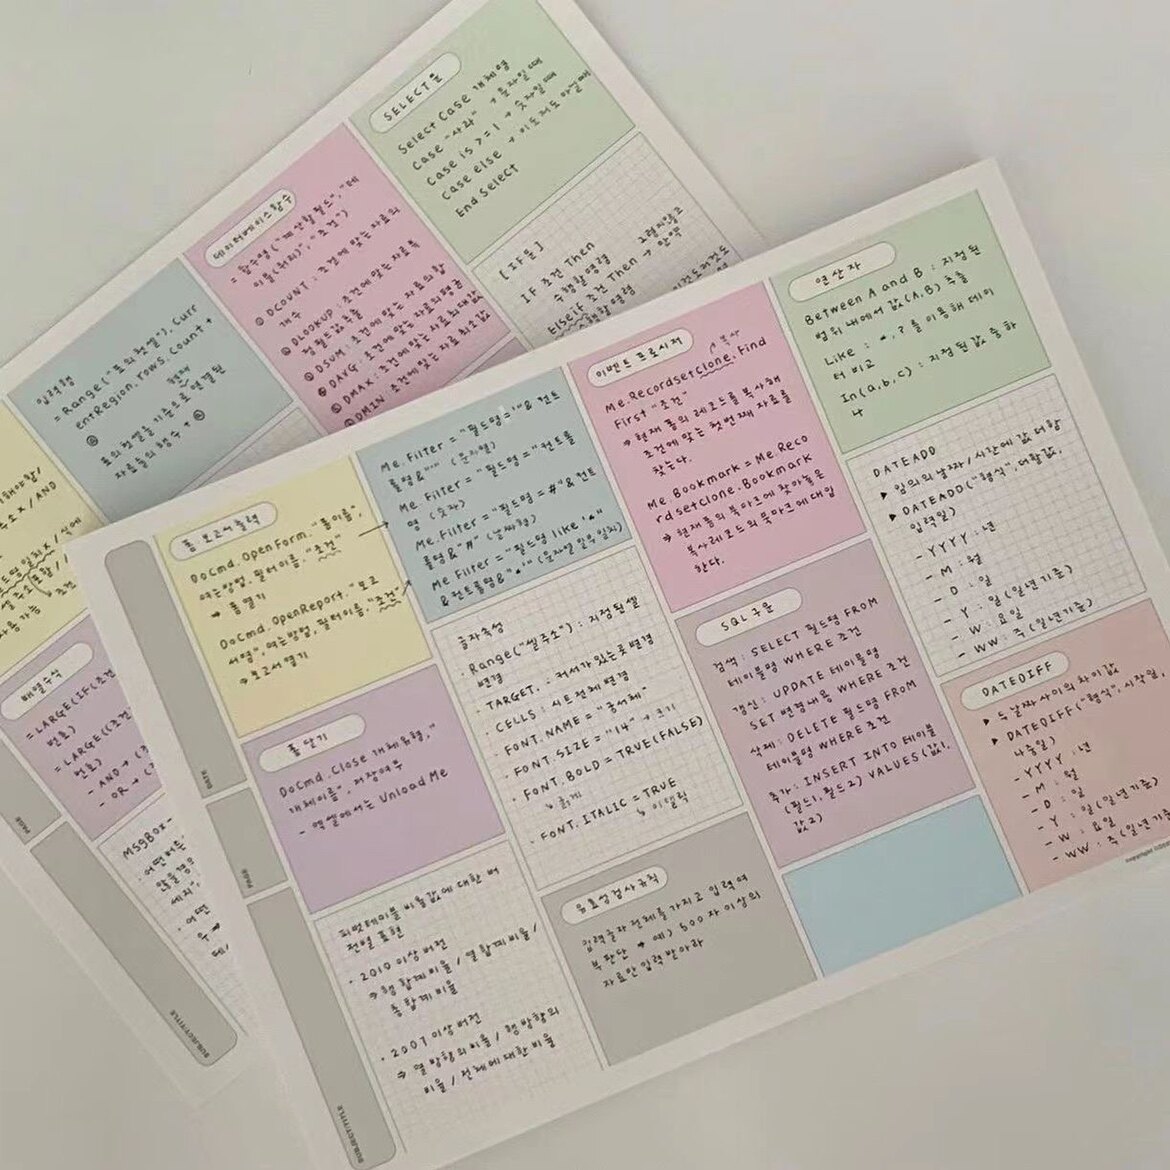 SELECT문
Select Case 개체명
Case "사과" → 문자일 때
Case is >= 1 → 숫자일 때
Case else → 이도저도 아닐 때
End Select
데이터베이스함수
= 함수명("계산할필드", "테
이블(쿼리)", "조건")
① DCOUNT : 조건에 맞는 자료의
개수
② DLOOKUP : 조건에 맞는 자료특
정필드값 추출
③ DSUM : 조건에 맞는 자료의합
④ DAVG : 조건에 맞는 자료의평균
⑤ DMAX : 조건에 맞는 자료최대값
⑥ DMIN : 조건에 맞는 자료최소값
[IF문]
IF 조건 Then
수행할명령
ElseIf 조건 Then → 만약
그렇지않고
입력행
= Range("표의첫셀"). Curr
entRegion. rows. Count +
현재
표의첫셀을 기준으로 연결된
자료들의 행수 +
배열수식
= LARGE(IF(조건
번호)
= LARGE((조건
번호)
- AND →
- OR →
MSgBox
어떤 버튼
DATE
PAGE
SUBJECT/TITLE
폼 보고서출력
DoCmd. OpenForm. "폼이름",
여는방법, 필터이름, "조건"
⇒ 폼열기
DoCmd. OpenReport. "보고
서명", 여는방법, 필터이름, "조건"
⇒ 보고서열기
Me. Filter = "필드명='"& 컨트
롤명&"'" (문자열)
Me. Filter = "필드명="컨트롤
명 (숫자)
Me. Filter = "필드명=#"&컨트
롤명&"#" (날짜형)
Me Filter = "필드명 like '*"
&컨트롤명&"*'" (문자열 일부일치)
이벤트 프로시저
복사
Me. Recordsetclone. Find
First "조건"
⇒ 현재 폼의 레코드를 복사해
조건에 맞는 첫번째 자료를
찾는다.
Me. Bookmark = Me. Reco
rdsetclone. Bookmark
⇒ 현재폼의 북마크에 찾아놓은
복사레코드의 북마크에대입
한다.
연산자
Between A and B : 지정된
범위 내에서 값(A,B) 추출
Like : *, ?를 이용해 데이
터 비교
In(a,b,c) : 지정된 값 중 하
나
폼 닫기
DoCmd. Close 개체유형, "
개체이름", 저장여부
- 엑셀에서는 Unload Me
글자속성
· Range("셀주소") : 지정된셀
변경
· TARGET. : 커서가 있는곳변경
· CELLS : 시트전체변경
· FONT. NAME = "궁서체"
· FONT. SIZE = "14" → 크기
· FONT. BOLD = TRUE(FALSE)
↳ 굵게
· FONT. ITALIC = TRUE
↳ 이탤릭
SQL구문
검색 : SELECT 필드명 FROM
테이블명 WHERE 조건
갱신 : UPDATE 테이블명
SET 변경내용 WHERE 조건
삭제 : DELETE 필드명 FROM
테이블명 WHERE 조건
추가 : INSERT INTO 테이블
(필드1, 필드2) VALUES(값1,
값2)
DATEADD
▶ 임의의 날짜/시간에 값 더함
▶ DATEADD("형식", 더할값,
입력일)
- YYYY : 년
- M : 월
- D : 일
- Y : 일(일년기준)
- W : 요일
- WW : 주(일년기준)
DATEDIFF
▶ 두날짜 사이의 차이값
▶ DATEDIFF("형식", 시작일,
나중일)
- YYYY : 년
- M : 월
- D : 일
- Y : 일(일년기준)
- W : 요일
- WW : 주(일년기준
피벗테이블 비율값에 대한 버
전별 표현
· 2010 이상버전
⇒ 행 합계비율 / 열 합계비율 /
총합계비율
· 2007 이상버전
⇒ 열방향의비율 / 행방향의
비율 / 전체에대한비율
유효성검사규칙
입력글자 전체를 가지고 입력여
부 판단 ⇒ 예) 500자 이상의
자료만 입력받아라
DATE
PAGE
SUBJECT/TITLE